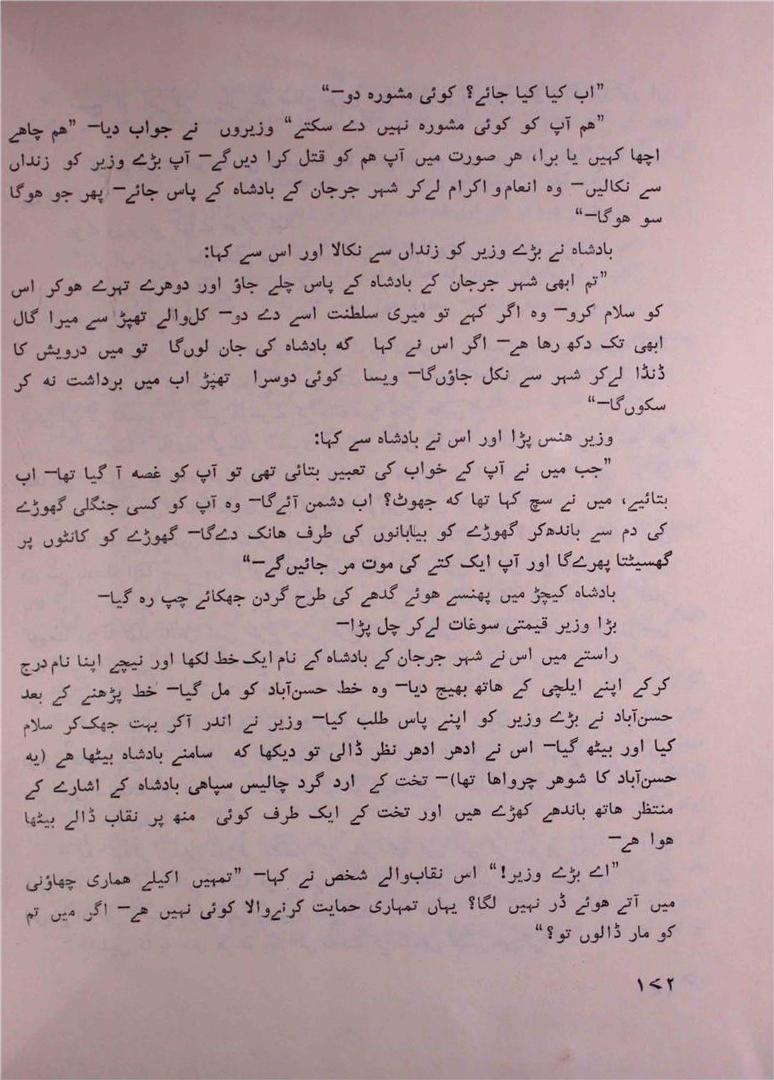 ”اب کیا کیا جائے؟ کوئی مشورہ دو—“
”هم آپ کو کوئی مشورہ نہیں دے سکتے“ وزیروں نے جواب دیا— ”هم چاهے
اچھا کہیں یا برا، هر صورت میں آپ هم کو قتل کرا دیں‌گے— آپ بڑے وزیر کو زنداں
سے نکالیں— وہ انعام و اکرام لے‌کر شہر جرجان کے بادشاہ کے پاس جائے— پھر جو هوگا
سو هوگا—“
بادشاہ نے بڑے وزیر کو زنداں سے نکالا اور اس سے کہا:
”تم ابھی شہر جرجان کے بادشاہ کے پاس چلے جاؤ اور دوهرے تہرے هوکر اس
کو سلام کرو— وہ اگر کہے تو میری سلطنت اسے دے دو— کل‌والے تھپڑ سے میرا گال
ابھی تک دکھ رها هے— اگر اس نے کہا که بادشاہ کی جان لوں‌گا تو میں درویش کا
ڈنڈا لے‌کر شہر سے نکل جاؤں‌گا— ویسا کوئی دوسرا تھپڑ اب میں برداشت نه کر
سکوں‌گا—“
وزیر هنس پڑا اور اس نے بادشاہ سے کہا:
”جب میں نے آپ کے خواب کی تعبیر بتائی تھی تو آپ کو غصه آ گیا تھا— اب
بتائیے، میں نے سچ کہا تھا که جھوٹ؟ اب دشمن آئےگا— وہ آپ کو کسی جنگلی گھوڑے
کی دم سے باندھ‌کر گھوڑے کو بیابانوں کی طرف هانک دےگا— گھوڑے کو کانٹوں پر
گھسیٹتا پھرےگا اور آپ ایک کتے کی موت مر جائیں‌گے—“
بادشاہ کیچڑ میں پھنسے هوئے گدھے کی طرح گردن جھکائے چپ رہ گیا—
بڑا وزیر قیمتی سوغات لے‌کر چل پڑا—
راستے میں اس نے شہر جرجان کے بادشاہ کے نام ایک خط لکھا اور نیچے اپنا نام درج
کرکے اپنے ایلچی کے هاتھ بھیج دیا— وہ خط حسن‌آباد کو مل گیا— خط پڑھنے کے بعد
حسن‌آباد نے بڑے وزیر کو اپنے پاس طلب کیا— وزیر نے اندر آکر بہت جھک‌کر سلام
کیا اور بیٹھ گیا— اس نے ادھر ادھر نظر ڈالی تو دیکھا که سامنے بادشاہ بیٹھا هے (یه
حسن‌آباد کا شوهر چرواها تھا)— تخت کے ارد گرد چالیس سپاهی بادشاہ کے اشارے کے
منتظر هاتھ باندھے کھڑے هیں اور تخت کے ایک طرف کوئی منھ پر نقاب ڈالے بیٹھا
هوا هے—
”اے بڑے وزیر!“ اس نقاب‌والے شخص نے کہا— ”تمہیں اکیلے هماری چھاؤنی
میں آتے هوئے ڈر نہیں لگا؟ یہاں تمہاری حمایت کرنے‌والا کوئی نہیں هے— اگر میں تم
کو مار ڈالوں تو؟“
۱۷۲